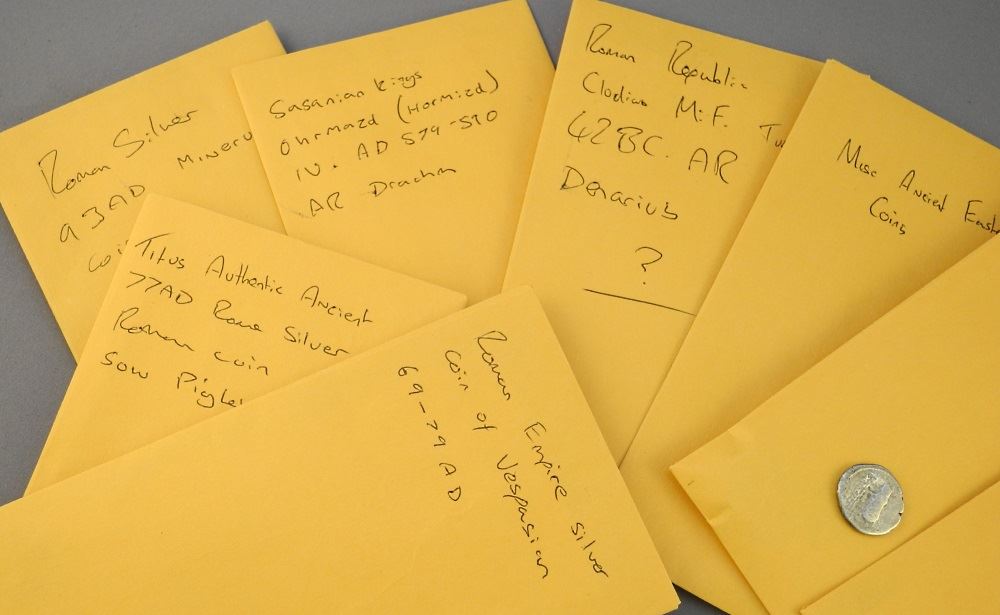 Roman Silver
93AD Minerv
coi
Sasanian kings
Ohrmazd (Hormizd)
IV. AD 579-590
AR Drachm
Roman Republic
Clodius M.F. Tu
42BC. AR
Denarius
?
Misc Ancient East
Coins
Titus Authentic Ancient
77AD Rome Silver
Roman coin
Sow Piglet
Roman Empire silver
coin of Vespasian
69-79 AD